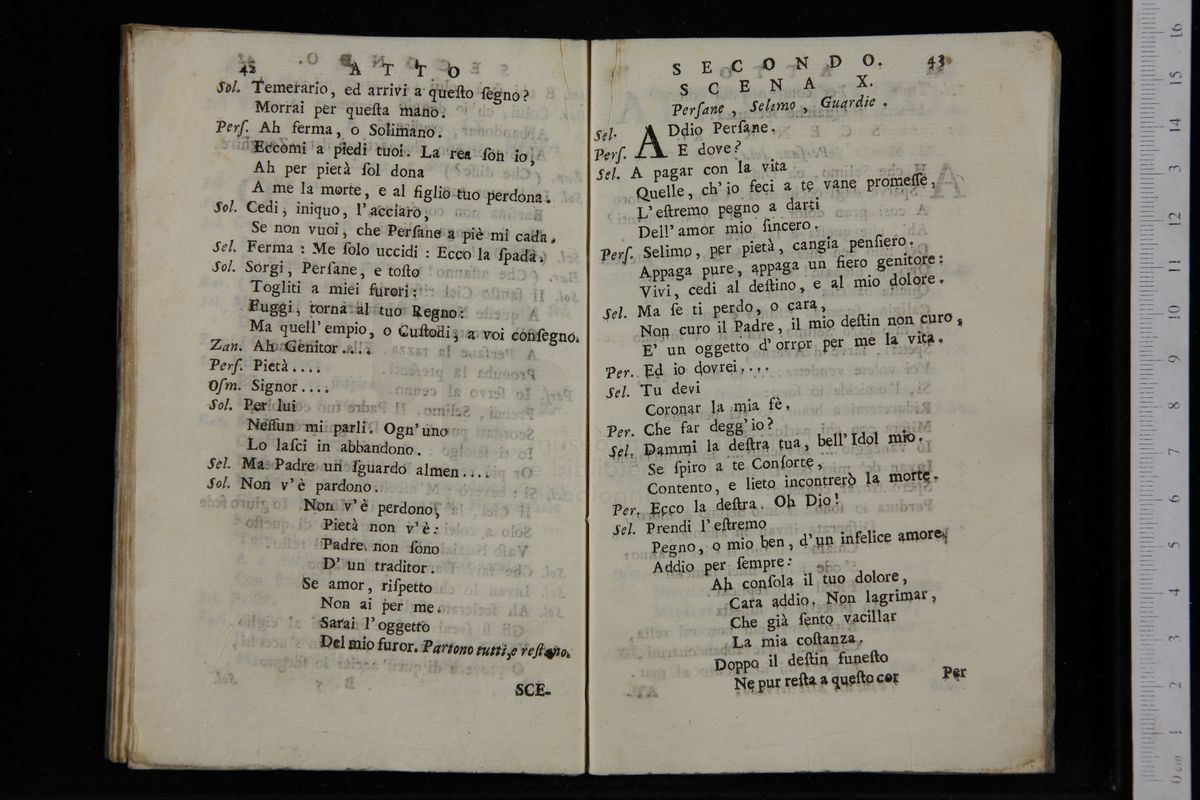 42 ATTO
Sol. Temerario, ed arrivi a queſto ſegno?
Morrai per queſta mano.
Perſ. Ah ferma, o Solimano.
Eccomi a piedi tuoi. La rea ſon io,
Ah per pietà ſol dona
A me la morte, e al figlio tuo perdona.
Sol. Cedi, iniquo, l'acciaro,
Se non vuoi, che Perſane a piè mi cada.
Sel. Ferma: Me ſolo uccidi: Ecco la ſpada.
Sol. Sorgi, Perſane, e toſto
Togliti a miei furori:
Fuggi, torna al tuo Regno:
Ma quell'empio, o Cuſtodi, a voi conſegno.
Zan. Ah Genitor....
Perſ. Pietà....
Oſm. Signor....
Sol. Per lui
Neſſun mi parli. Ogn'uno
Lo laſci in abbandono.
Sel. Ma Padre un ſguardo almen....
Sol. Non v'è pardono.
Non v'è perdono,
Pietà non v'è:
Padre non ſono
D'un traditor.
Se amor, riſpetto
Non ai per me.
Sarai l'oggetto
Del mio furor. Partono tutti, e reſtano.
SCE-
SECONDO. 43
SCENA X.
Perſane, Selimo, Guardie.
Sel. ADdio Perſane.
Perſ. E dove?
Sel. A pagar con la vita
Quelle, ch'io feci a te vane promeſſe,
L'eſtremo pegno a darti
Dell'amor mio ſincero.
Perſ. Selimo, per pietà, cangia penſiero.
Appaga pure, appaga un fiero genitore:
Vivi, cedi al deſtino, e al mio dolore.
Sel. Ma ſe ti perdo, o cara,
Non curo il Padre, il mio deſtin non curo,
E' un oggetto d'orror per me la vita.
Per. Ed io dovrei....
Sel. Tu devi
Coronar la mia fè.
Per. Che far degg'io?
Sel. Dammi la deſtra tua, bell'Idol mio.
Se ſpiro a te Conſorte,
Contento, e lieto incontrerò la morte.
Per. Ecco la deſtra. Oh Dio!
Sel. Prendi l'eſtremo
Pegno, o mio ben, d'un infelice amore,
Addio per ſempre:
Ah conſola il tuo dolore,
Cara addio. Non lagrimar,
Che già ſento vacillar
La mia coſtanza.
Doppo il deſtin funeſto
Ne pur reſta a queſto cor
Per